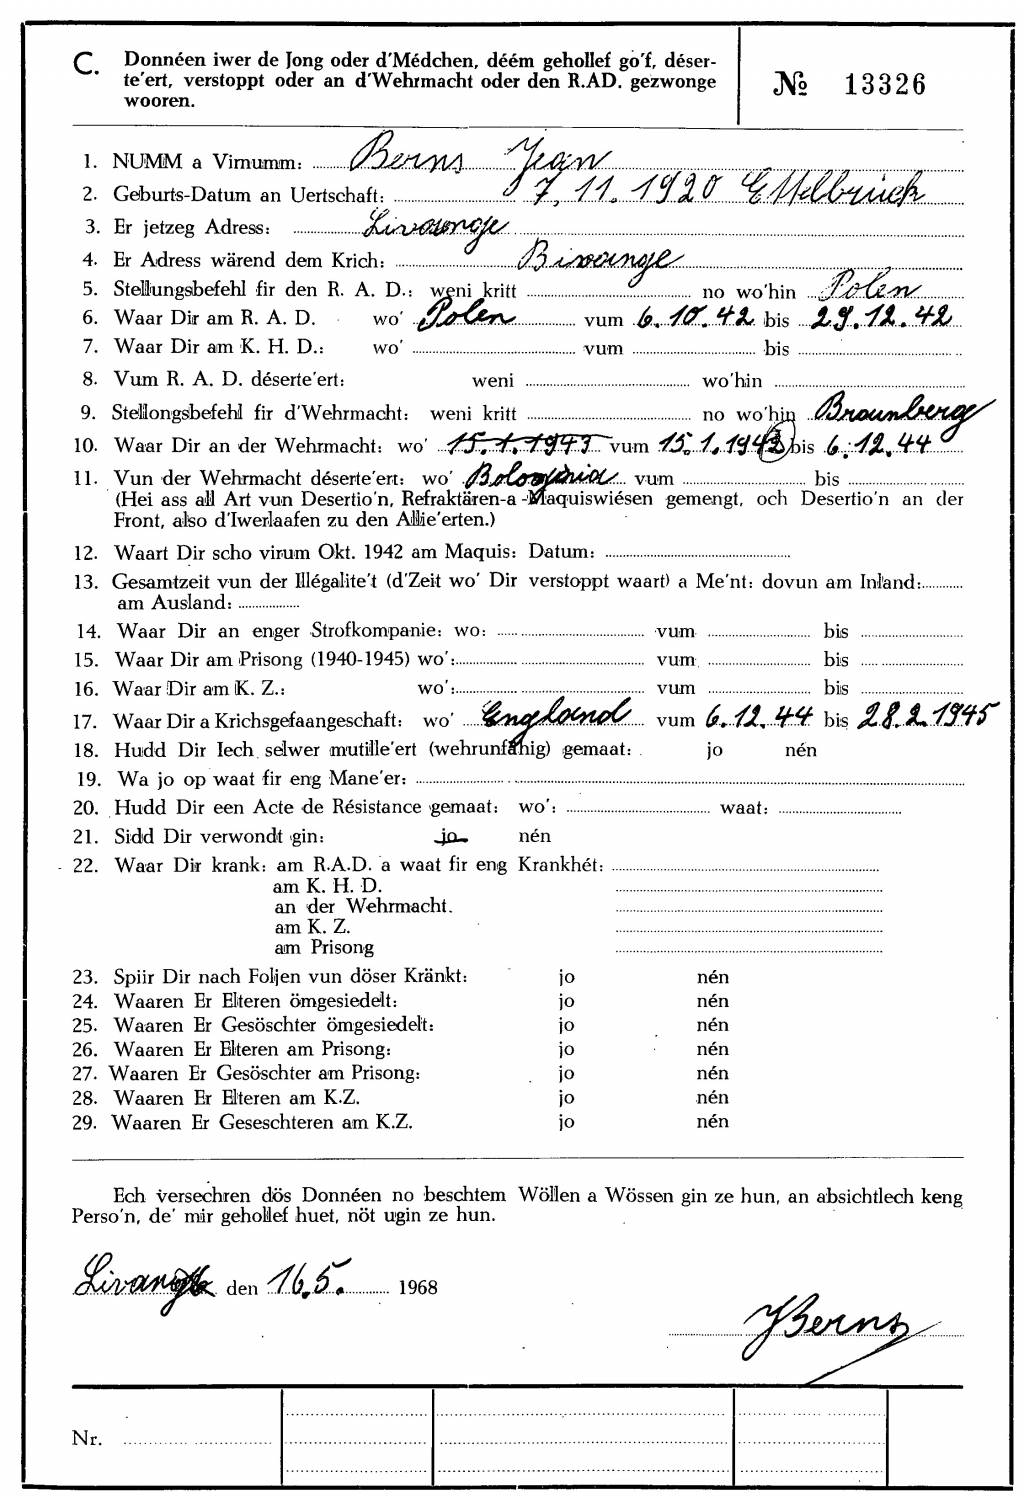 C. Donnéen iwer de Jong oder d'Médchen, déém gehollef go'f, déser-
te'ert, verstoppt oder an d'Wehrmacht oder den R.AD. gezwonge
wooren.
№ 13326
1. NUMM a Virnumm: Berns Jean
2. Geburts-Datum an Uertschaft: 7.11.1920 Ettelbrück
3. Er jetzeg Adress: Livange
4. Er Adress wärend dem Krich: Bivange
5. Stellungsbefehl fir den R. A. D.: weni kritt no wo'hin Polen
6. Waar Dir am R. A. D. wo' Polen vum 6.10.42 bis 29.12.42
7. Waar Dir am K. H. D.: wo' vum bis
8. Vum R. A. D. déserte'ert: weni wo'hin
9. Stellongsbefehl fir d'Wehrmacht: weni kritt no wo'hin Braunberge
10. Waar Dir an der Wehrmacht: wo' 15.1.1943 vum 15.1.1943 bis 6.12.44
11. Vun der Wehrmacht déserte'ert: wo' vum bis
(Hei ass all Art vun Desertio'n, Refraktären-a -Maquiswiésen gemengt, och Desertio'n an der
Front, also d'Iwerlaafen zu den Allie'erten.)
12. Waart Dir scho virum Okt. 1942 am Maquis: Datum:
13. Gesamtzeit vun der Illégalite't (d'Zeit wo' Dir verstoppt waart) a Me'nt: dovun am Inland:
am Ausland:
14. Waar Dir an enger Strofkompanie: wo: vum bis
15. Waar Dir am Prisong (1940-1945) wo': vum bis
16. Waar Dir am K. Z.: wo': vum bis
17. Waar Dir a Krichsgefaangeschaft: wo' England vum 6.12.44 bis 28.2.1945
18. Hudd Dir Iech selwer mutille'ert (wehrunfähig) gemaat: jo nén
19. Wa jo op waat fir eng Mane'er:
20. Hudd Dir een Acte de Résistance gemaat: wo': waat:
21. Sidd Dir verwondt gin: jo nén
22. Waar Dir krank: am R.A.D. a waat fir eng Krankhét:
am K. H. D.
an der Wehrmacht.
am K. Z.
am Prisong
23. Spiir Dir nach Foljen vun döser Kränkt: jo nén
24. Waaren Er Elteren ömgesiedelt: jo nén
25. Waaren Er Gesöschter ömgesiedelt: jo nén
26. Waaren Er Elteren am Prisong: jo nén
27. Waaren Er Gesöschter am Prisong: jo nén
28. Waaren Er Elteren am K.Z. jo nén
29. Waaren Er Geseschteren am K.Z. jo nén
Ech versechren dös Donnéen no beschtem Wöllen a Wössen gin ze hun, an absichtlech keng
Perso'n, de' mir gehollef huet, nöt ugin ze hun.
Livange den 16.5. 1968
J Berns
Nr.